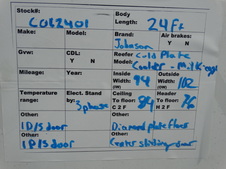 Stock#: Body
COL2401 Length: 24Ft
Make: Model: Brand Air brakes:
Johnson Y N
Gvw: CDL: Reefer Cold Plate
Y N Model: Cooler - Milk
Mileage: Year: Inside Outside
Width: 94 Width: 102
Temperature Elect. Stand Ceiling Header
range: by: 3phase To floor: 84 To floor: 76
C 2 F H 2 F
Other: Other:
1 D/S door Diamond plate floors
Other: Other:
1 P/S door Center sliding door